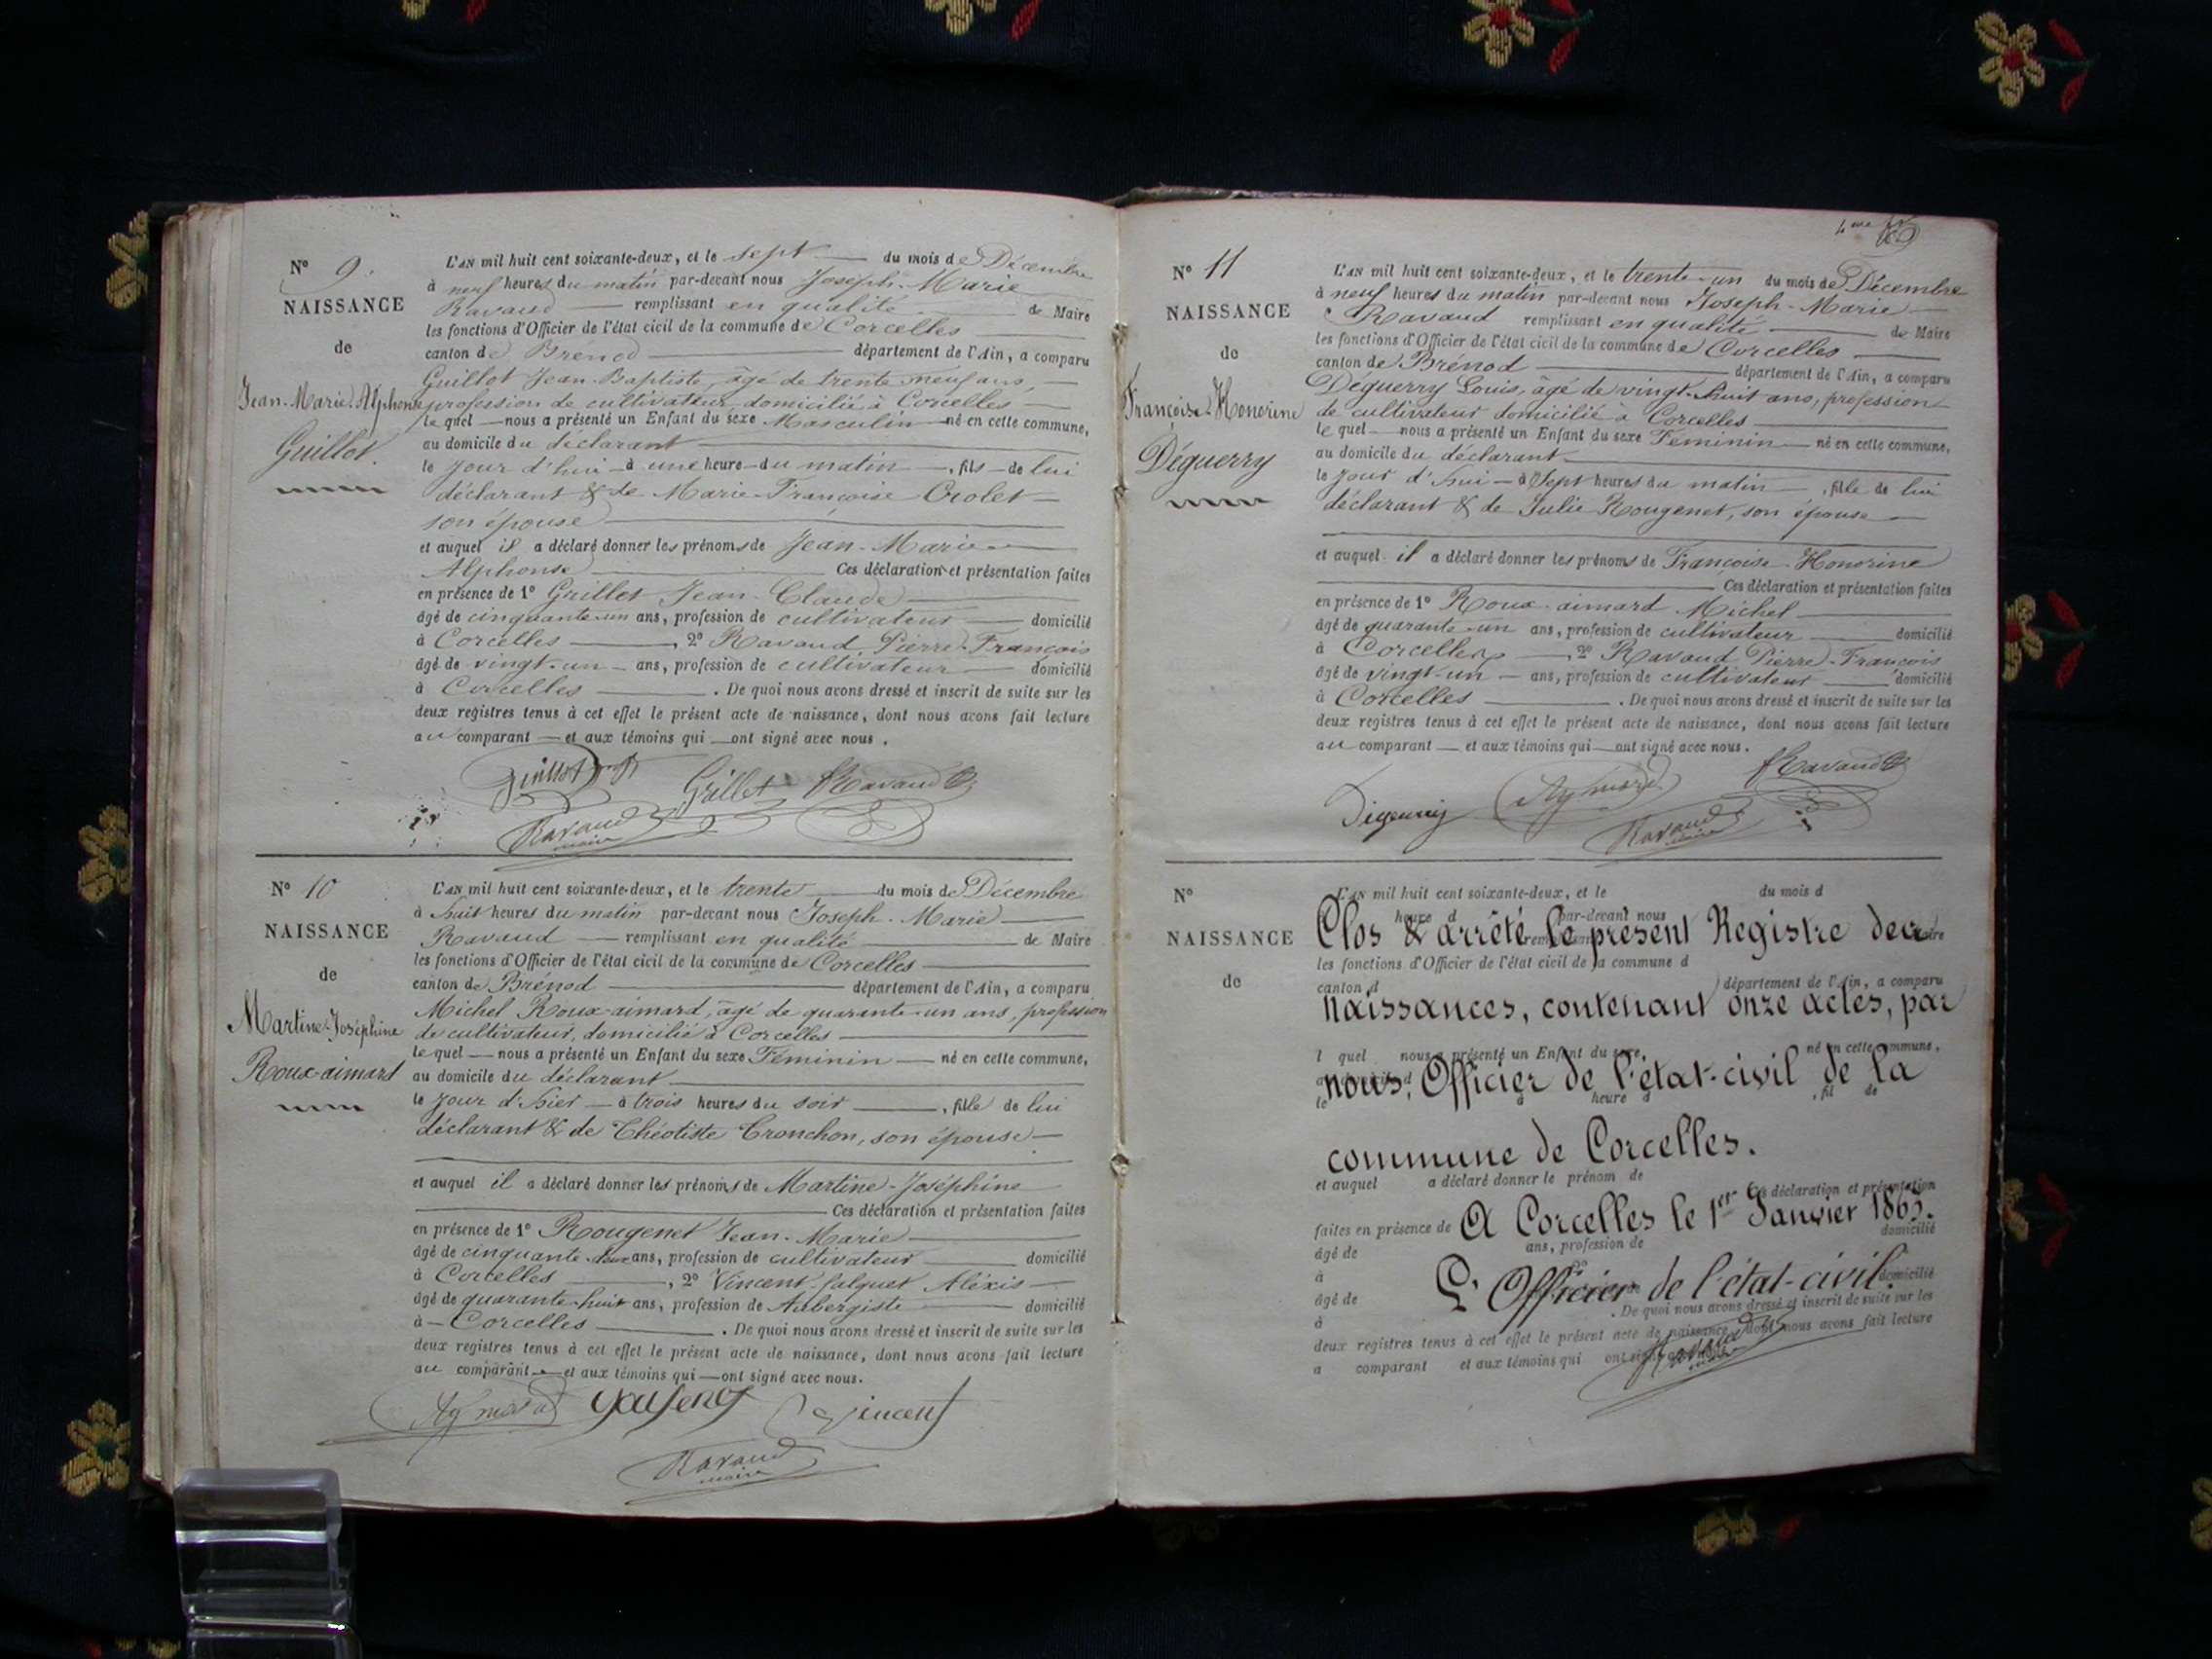 N° 9.
NAISSANCE
de
Jean-Marie Alphonse
Guillot.
L'AN mil huit cent soixante-deux, et le sept du mois de Décembre
à neuf heures du matin par-devant nous Joseph-Marie
Ravaud remplissant en qualité de Maire
les fonctions d'Officier de l'état civil de la commune de Corcelles
canton de Brénod département de l'Ain, a comparu
Guillot Jean-Baptiste, âgé de trente neuf ans,
profession de cultivateur domicilié à Corcelles
le quel nous a présenté un Enfant du sexe Masculin né en cette commune,
au domicile du déclarant
le jour d'hui à une heure du matin, fils de lui
déclarant & de Marie-Françoise
son épouse
et auquel il a déclaré donner les prénoms de Jean-Marie
Alphonse Ces déclaration et présentation faites
en présence de 1° Grillet Jean-Claude
âgé de cinquante-un ans, profession de cultivateur domicilié
à Corcelles, 2° Ravaud Pierre-François
âgé de vingt-un ans, profession de cultivateur domicilié
à Corcelles. De quoi nous avons dressé et inscrit de suite sur les
deux registres tenus à cet effet le présent acte de naissance, dont nous avons fait lecture
au comparant et aux témoins qui ont signé avec nous.
Guillot Grillet Ravaud
Ravaud
maire
N° 10
NAISSANCE
de
Martine-Joséphine
Roux-aimard
L'AN mil huit cent soixante-deux, et le trente du mois de Décembre
à huit heures du matin par-devant nous Joseph-Marie
Ravaud remplissant en qualité de Maire
les fonctions d'Officier de l'état civil de la commune de Corcelles
canton de Brénod département de l'Ain, a comparu
Michel Roux-aimard, âgé de quarante-un ans, profession
de cultivateur, domicilié à Corcelles
le quel nous a présenté un Enfant du sexe Féminin né en cette commune,
au domicile du déclarant
le jour d'hier à trois heures du soir, fille de lui
déclarant & de Théotiste Cronchon, son épouse
et auquel il a déclaré donner les prénoms de Martine-Joséphine
Ces déclaration et présentation faites
en présence de 1° Rougenet Jean-Marie
âgé de cinquante ans, profession de cultivateur domicilié
à Corcelles, 2° Vincent-falquet Aléxis
âgé de quarante-huit ans, profession de Aubergiste domicilié
à Corcelles. De quoi nous avons dressé et inscrit de suite sur les
deux registres tenus à cet effet le présent acte de naissance, dont nous avons fait lecture
au comparant et aux témoins qui ont signé avec nous.
Aymard Vincent
Ravaud
maire
N° 11
NAISSANCE
de
Françoise-Honorine
Déguerry
L'AN mil huit cent soixante-deux, et le trente-un du mois de Décembre
à neuf heures du matin par-devant nous Joseph-Marie
Ravaud remplissant en qualité de Maire
les fonctions d'Officier de l'état civil de la commune de Corcelles
canton de Brénod département de l'Ain, a comparu
Déguerry Louis, âgé de vingt-huit ans, profession
de cultivateur domicilié à Corcelles
le quel nous a présenté un Enfant du sexe Féminin né en cette commune,
au domicile du déclarant
le jour d'hui à Sept heures du matin, fille de lui
déclarant & de Julie Rougenet, son épouse
et auquel il a déclaré donner les prénoms de Françoise-Honorine
Ces déclaration et présentation faites
en présence de 1° Roux-aimard Michel
âgé de quarante-un ans, profession de cultivateur domicilié
à Corcelles, 2° Ravaud Pierre-François
âgé de vingt-un ans, profession de cultivateur domicilié
à Corcelles. De quoi nous avons dressé et inscrit de suite sur les
deux registres tenus à cet effet le présent acte de naissance, dont nous avons fait lecture
au comparant et aux témoins qui ont signé avec nous.
Ravaud
Aymard
Ravaud
maire
N°
NAISSANCE
de
L'AN mil huit cent soixante-deux, et le du mois d
heure d par-devant nous
Clos & arrêté le présent Registre des
les fonctions d'Officier de l'état civil de la commune d
canton d département de l'Ain, a comparu
naissances, contenant onze actes, par
l quel nous a présenté un Enfant du sexe né en cette commune,
nous, Officier de l'état-civil de la
le à heure d , fil de
commune de Corcelles.
et auquel a déclaré donner le prénom de
Ces déclaration et présentation
faites en présence de A Corcelles le 1er Janvier 1863.
domicilié
âgé de ans, profession de
à
L'Officier de l'état-civil.
domicilié
âgé de
à . De quoi nous avons dressé et inscrit de suite sur les
deux registres tenus à cet effet le présent acte de naissance, dont nous avons fait lecture
a comparant et aux témoins qui ont signé avec nous.
Ravaud
maire